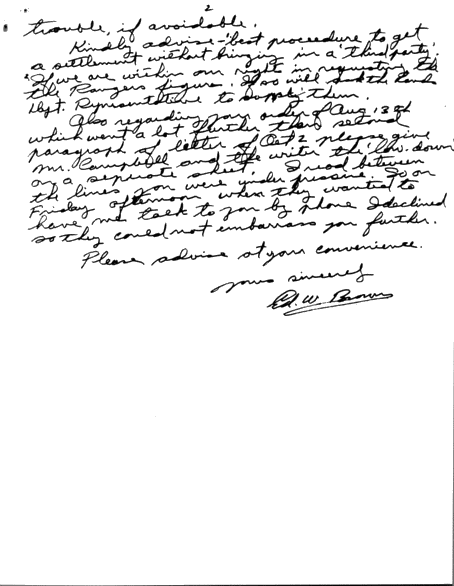 2
trouble, if avoidable.
Kindly advise - best proceedure to get
a settlement without bringing in a "third party".
If we are within our right in requesting the
the Rangers figure. If so will Lands
Dept. Representative to supply them.
Also regarding your order of Aug 13th
which went a lot further than second
paragraph of letter of Oct 2 please give
Mr. Campbell and the writer the low down
on a seperate sheet. I read between
the lines you were under pressure. So on
Friday afternoon when they wanted to
have me talk to you by phone I declined
so they could not embarrass you further.
Please advise at your convenience.
Yours sincerely
Ed. W. Brown